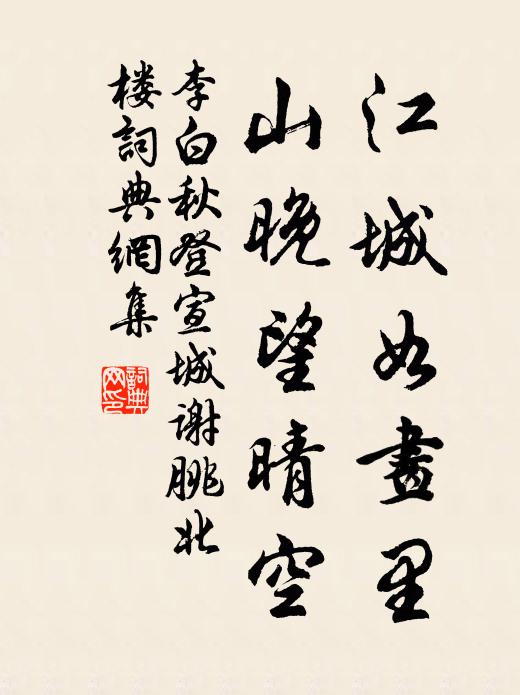 江城如畫里
山晚望晴空
李白秋登宣城謝脁北
楼詞典網集
詞典
网印